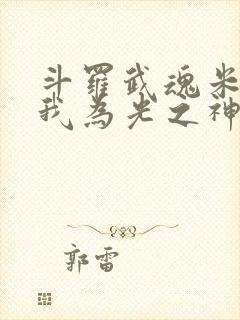 斗羅武魂米
我為光之神
郭雷